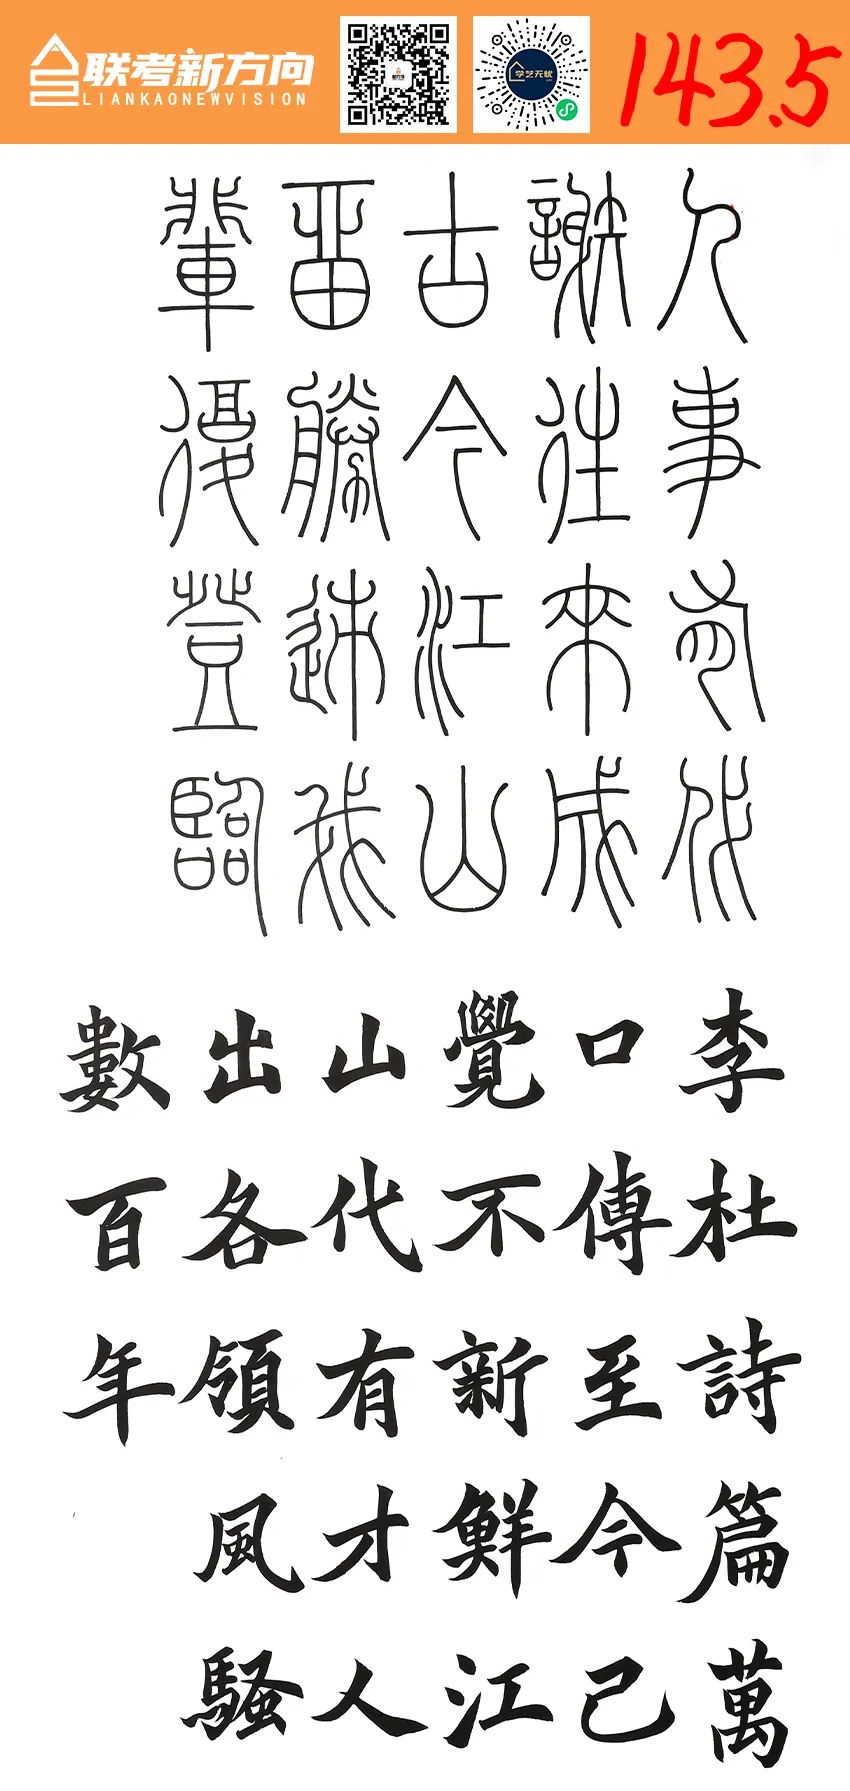 联考新方向
LIANKAONEWVISION
学艺无忧
143.5
人事有代
謝往來成
古今江山
留勝迹我
輩復登臨
李杜詩篇萬
口傳至今已
覺不新鮮江
山代有才人
出各領風騷
數百年